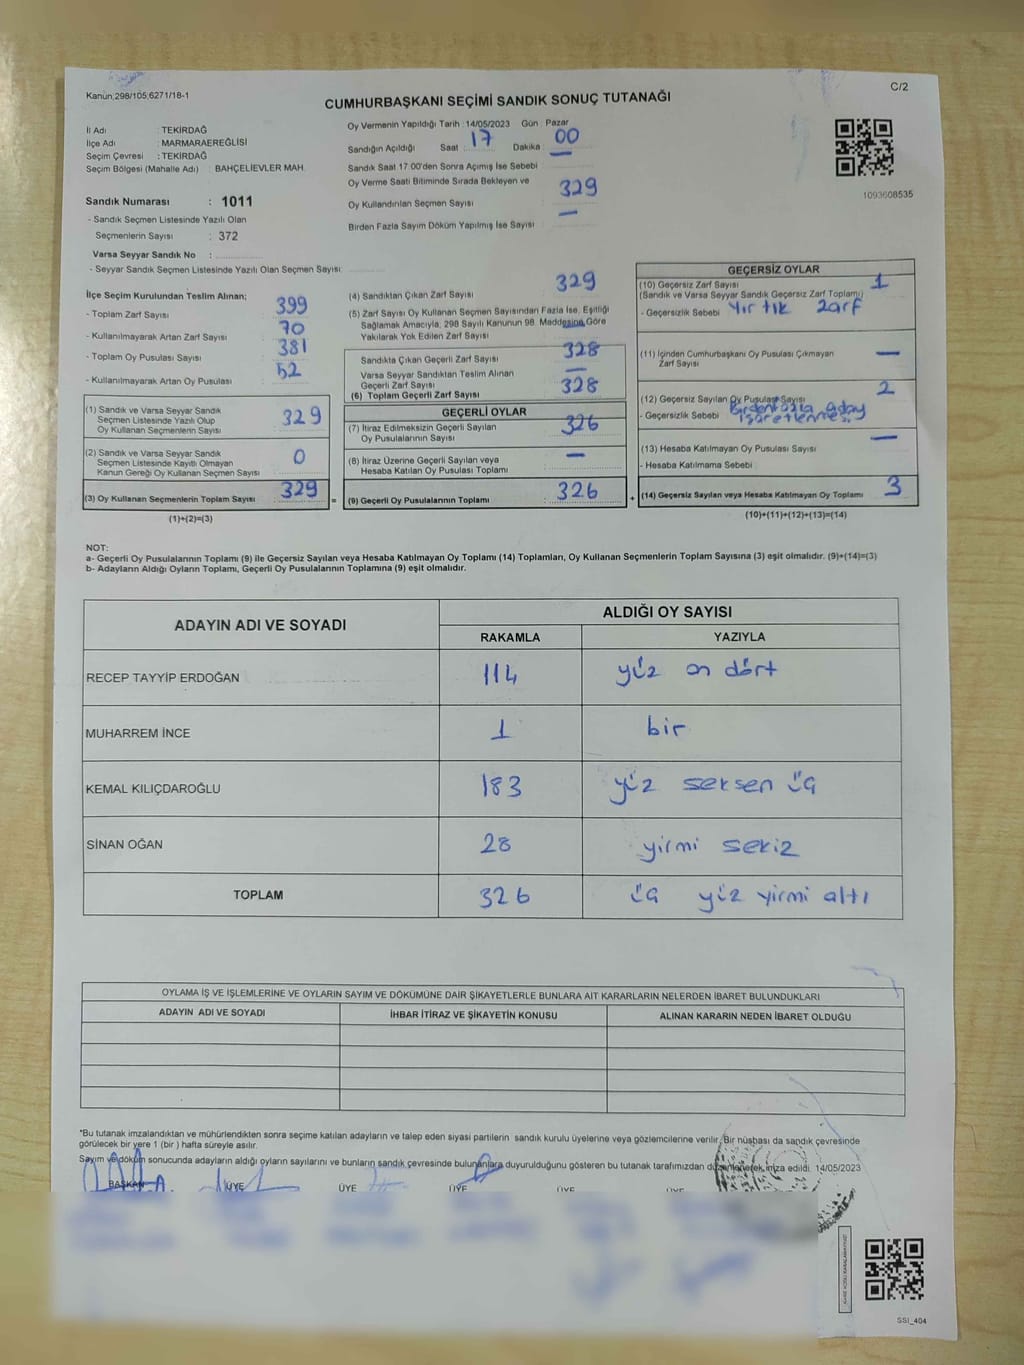 Kanun;298/105;6271/18-1
C/2
CUMHURBAŞKANI SEÇİMİ SANDIK SONUÇ TUTANAĞI
İl Adı : TEKİRDAĞ
İlçe Adı : MARMARAEREĞLİSİ
Seçim Çevresi : TEKİRDAĞ
Seçim Bölgesi (Mahalle Adı) : BAHÇELİEVLER MAH.
Sandık Numarası : 1011
- Sandık Seçmen Listesinde Yazılı Olan
Seçmenlerin Sayısı : 372
Varsa Seyyar Sandık No :
- Seyyar Sandık Seçmen Listesinde Yazılı Olan Seçmen Sayısı:
Oy Vermenin Yapıldığı Tarih :14/05/2023 Gün : Pazar
Sandığın Açıldığı Saat : 17 Dakika : 00
Sandık Saat 17:00'den Sonra Açımış İse Sebebi : —
Oy Verme Saati Bitiminde Sırada Bekleyen ve
Oy Kullandırılan Seçmen Sayısı : 329
Birden Fazla Sayım Döküm Yapılmış İse Sayısı : —
1093608535
İlçe Seçim Kurulundan Teslim Alınan;
- Toplam Zarf Sayısı : 399
- Kullanılmayarak Artan Zarf Sayısı : 70
- Toplam Oy Pusulası Sayısı : 381
- Kullanılmayarak Artan Oy Pusulası : 52
(1) Sandık ve Varsa Seyyar Sandık
Seçmen Listesinde Yazılı Olup
Oy Kullanan Seçmenlerin Sayısı : 329
(2) Sandık ve Varsa Seyyar Sandık
Seçmen Listesinde Kayıtlı Olmayan
Kanun Gereği Oy Kullanan Seçmen Sayısı : 0
(3) Oy Kullanan Seçmenlerin Toplam Sayısı : 329
(1)+(2)=(3)
=
(4) Sandıktan Çıkan Zarf Sayısı : 329
(5) Zarf Sayısı Oy Kullanan Seçmen Sayısından Fazla İse, Eşitliği
Sağlamak Amacıyla, 298 Sayılı Kanunun 98. Maddesine Göre
Yakılarak Yok Edilen Zarf Sayısı : —
Sandıkta Çıkan Geçerli Zarf Sayısı : 328
Varsa Seyyar Sandıktan Teslim Alınan
Geçerli Zarf Sayısı : —
(6) Toplam Geçerli Zarf Sayısı : 328
GEÇERLİ OYLAR
(7) İtiraz Edilmeksizin Geçerli Sayılan
Oy Pusulalarının Sayısı : 326
(8) İtiraz Üzerine Geçerli Sayılan veya
Hesaba Katılan Oy Pusulası Toplamı : —
(9) Geçerli Oy Pusulalarının Toplamı : 326
+
GEÇERSİZ OYLAR
(10) Geçersiz Zarf Sayısı : 1
(Sandık ve Varsa Seyyar Sandık Geçersiz Zarf Toplamı)
- Geçersizlik Sebebi : Yırtık zarf
(11) İçinden Cumhurbaşkanı Oy Pusulası Çıkmayan
Zarf Sayısı : —
(12) Geçersiz Sayılan Oy Pusulası Sayısı : 2
- Geçersizlik Sebebi : Birden fazla aday
işaretlenmesi
(13) Hesaba Katılmayan Oy Pusulası Sayısı : —
- Hesaba Katılmama Sebebi :
(14) Geçersiz Sayılan veya Hesaba Katılmayan Oy Toplamı : 3
(10)+(11)+(12)+(13)=(14)
NOT:
a- Geçerli Oy Pusulalarının Toplamı (9) ile Geçersiz Sayılan veya Hesaba Katılmayan Oy Toplamı (14) Toplamları, Oy Kullanan Seçmenlerin Toplam Sayısına (3) eşit olmalıdır. (9)+(14)=(3)
b- Adayların Aldığı Oyların Toplamı, Geçerli Oy Pusulalarının Toplamına (9) eşit olmalıdır.
ADAYIN ADI VE SOYADI ALDIĞI OY SAYISI
RAKAMLA YAZIYLA
RECEP TAYYİP ERDOĞAN 114 yüz on dört
MUHARREM İNCE 1 bir
KEMAL KILIÇDAROĞLU 183 yüz seksen üç
SİNAN OĞAN 28 yirmi sekiz
TOPLAM 326 üç yüz yirmi altı
OYLAMA İŞ VE İŞLEMLERİNE VE OYLARIN SAYIM VE DÖKÜMÜNE DAİR ŞİKAYETLERLE BUNLARA AİT KARARLARIN NELERDEN İBARET BULUNDUKLARI
ADAYIN ADI VE SOYADI İHBAR İTİRAZ VE ŞİKAYETİN KONUSU ALINAN KARARIN NEDEN İBARET OLDUĞU
*Bu tutanak imzalandıktan ve mühürlendikten sonra seçime katılan adayların ve talep eden siyasi partilerin sandık kurulu üyelerine veya gözlemcilerine verilir. Bir nüshası da sandık çevresinde
görülecek bir yere 1 (bir ) hafta süreyle asılır.
Sayım ve döküm sonucunda adayların aldığı oyların sayılarını ve bunların sandık çevresinde bulunanlara duyurulduğunu gösteren bu tutanak tarafımızdan düzenlenerek imza edildi. 14/05/2023
BAŞKAN ÜYE ÜYE ÜYE ÜYE ÜYE
SSİ_404